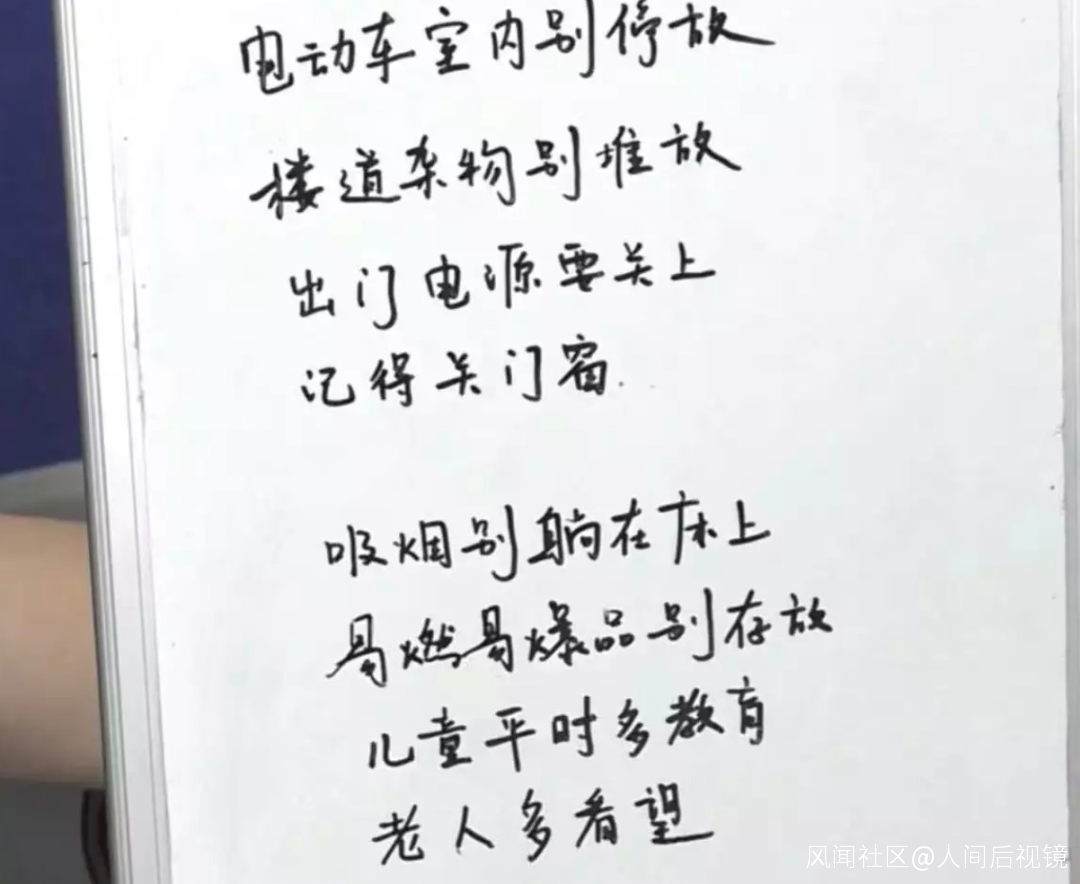 电动车室内别停放
楼道杂物别堆放
出门电源要关上
记得关门窗.
吸烟别躺在床上
易燃易爆品别存放
儿童平时多教育
老人多看望
风闻社区@人间后视镜